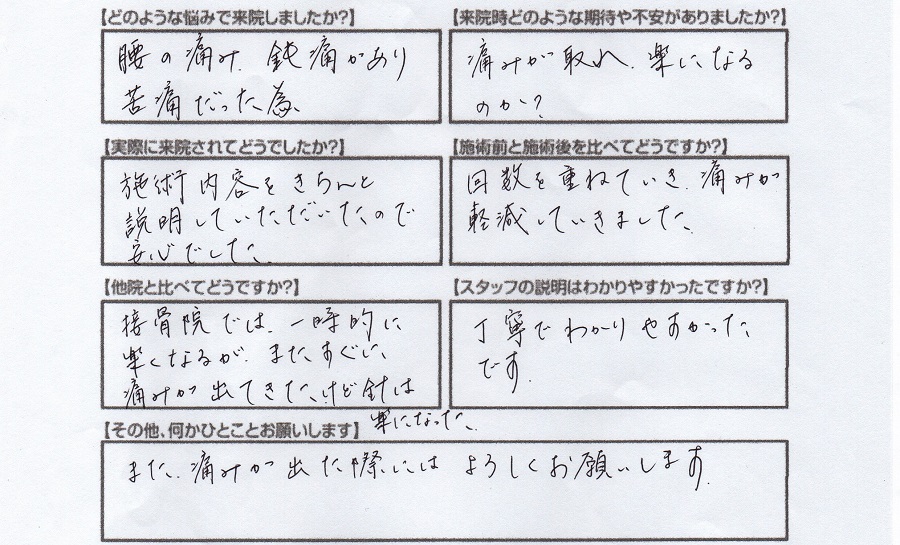 【どのような悩みで来院しましたか?】
腰の痛み.鈍痛があり
苦痛だった為、
【来院時どのような期待や不安がありましたか?】
痛みが取れ、楽になる
のか?
【実際に来院されてどうでしたか?】
施術内容をきちんと
説明していただいたので
安心でした。
【施術前と施術後を比べてどうですか?】
回数を重ねていき、痛みが
軽減していきました。
【他院と比べてどうですか?】
接骨院では、一時的に
楽くなるが、また、すぐに、
痛みが出てきた、けど針は
楽になった。
【スタッフの説明はわかりやすかったですか?】
丁寧でわかりやすかった
です。
【その他、何かひとことお願いします】
また、痛みが出た際にはよろしくお願いします。